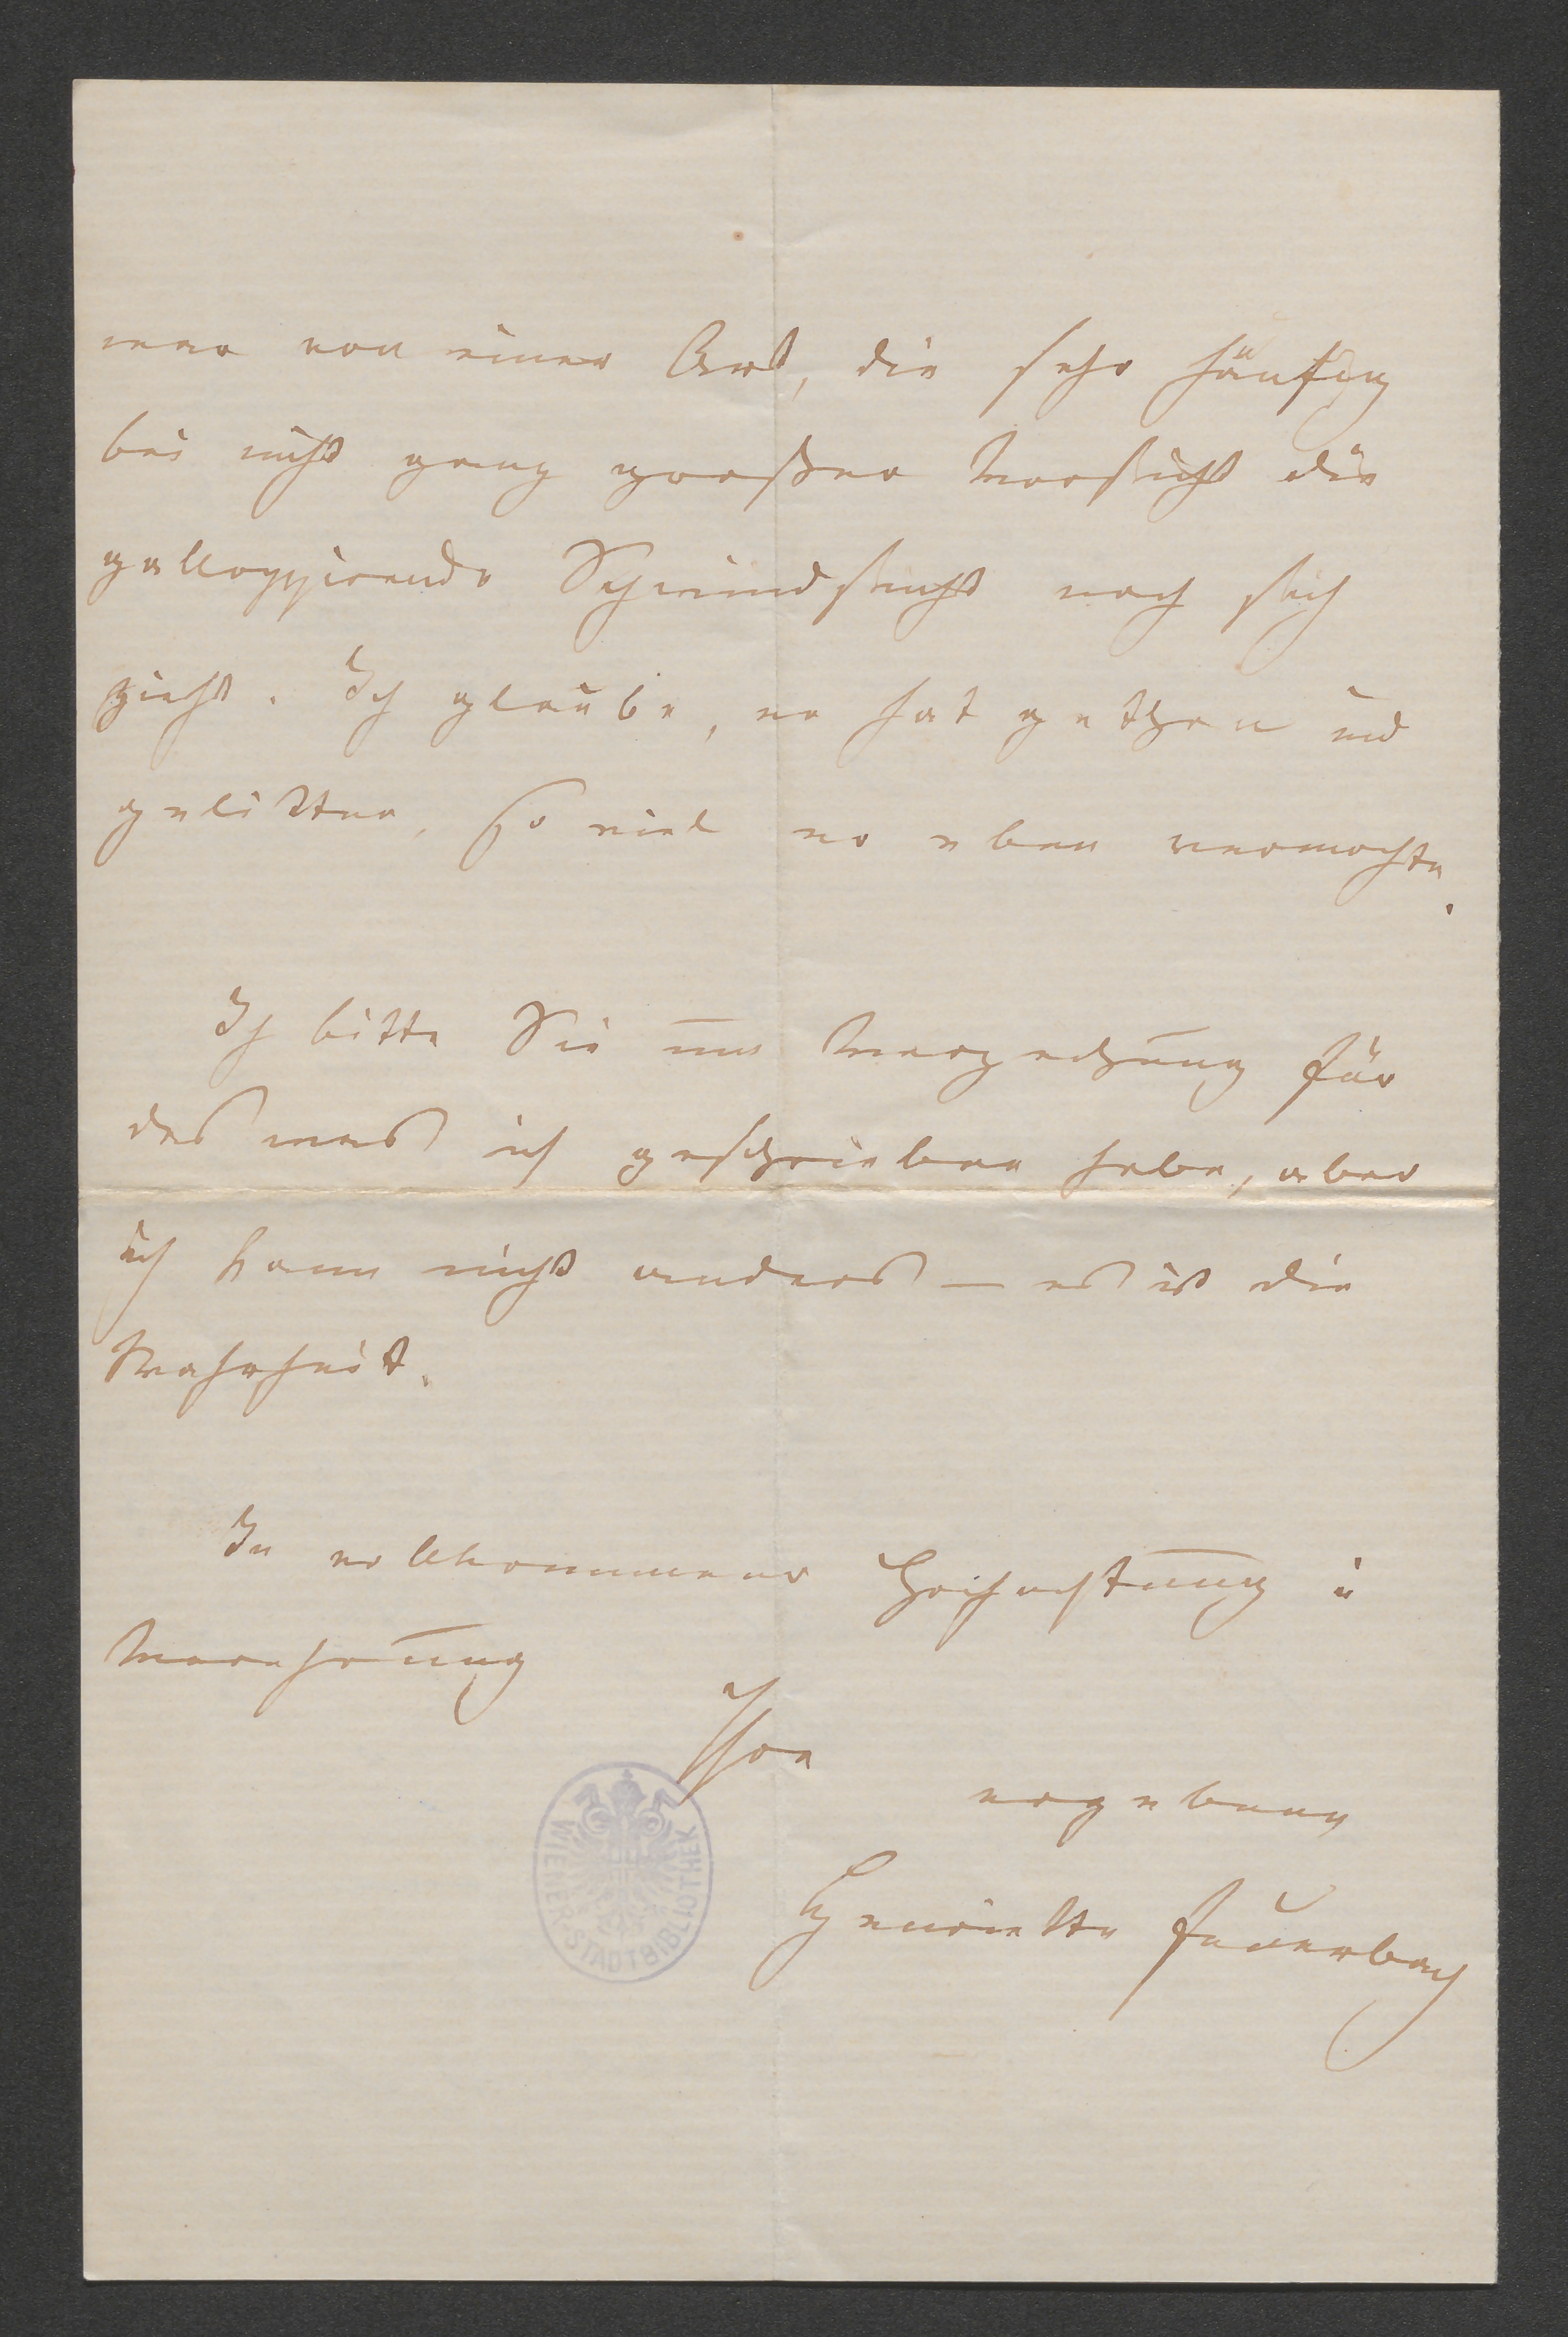 war von einer Art, die sehr häufig
bei nicht ganz großer Vorsicht die
galloppirende Schwindsucht nach sich
zieht. Ich glaube, er hat gethan und
gelitten, so viel er eben vermochte.
Ich bitte Sie um Verzeihung für
das was ich geschrieben habe, aber
ich kann nicht anders – es ist die
Wahrheit.
In vollkommener Hochachtung u
Verehrung
Ihre
ergebene
Henriette Feuerbach
WIENER STADTBIBLIOTHEK